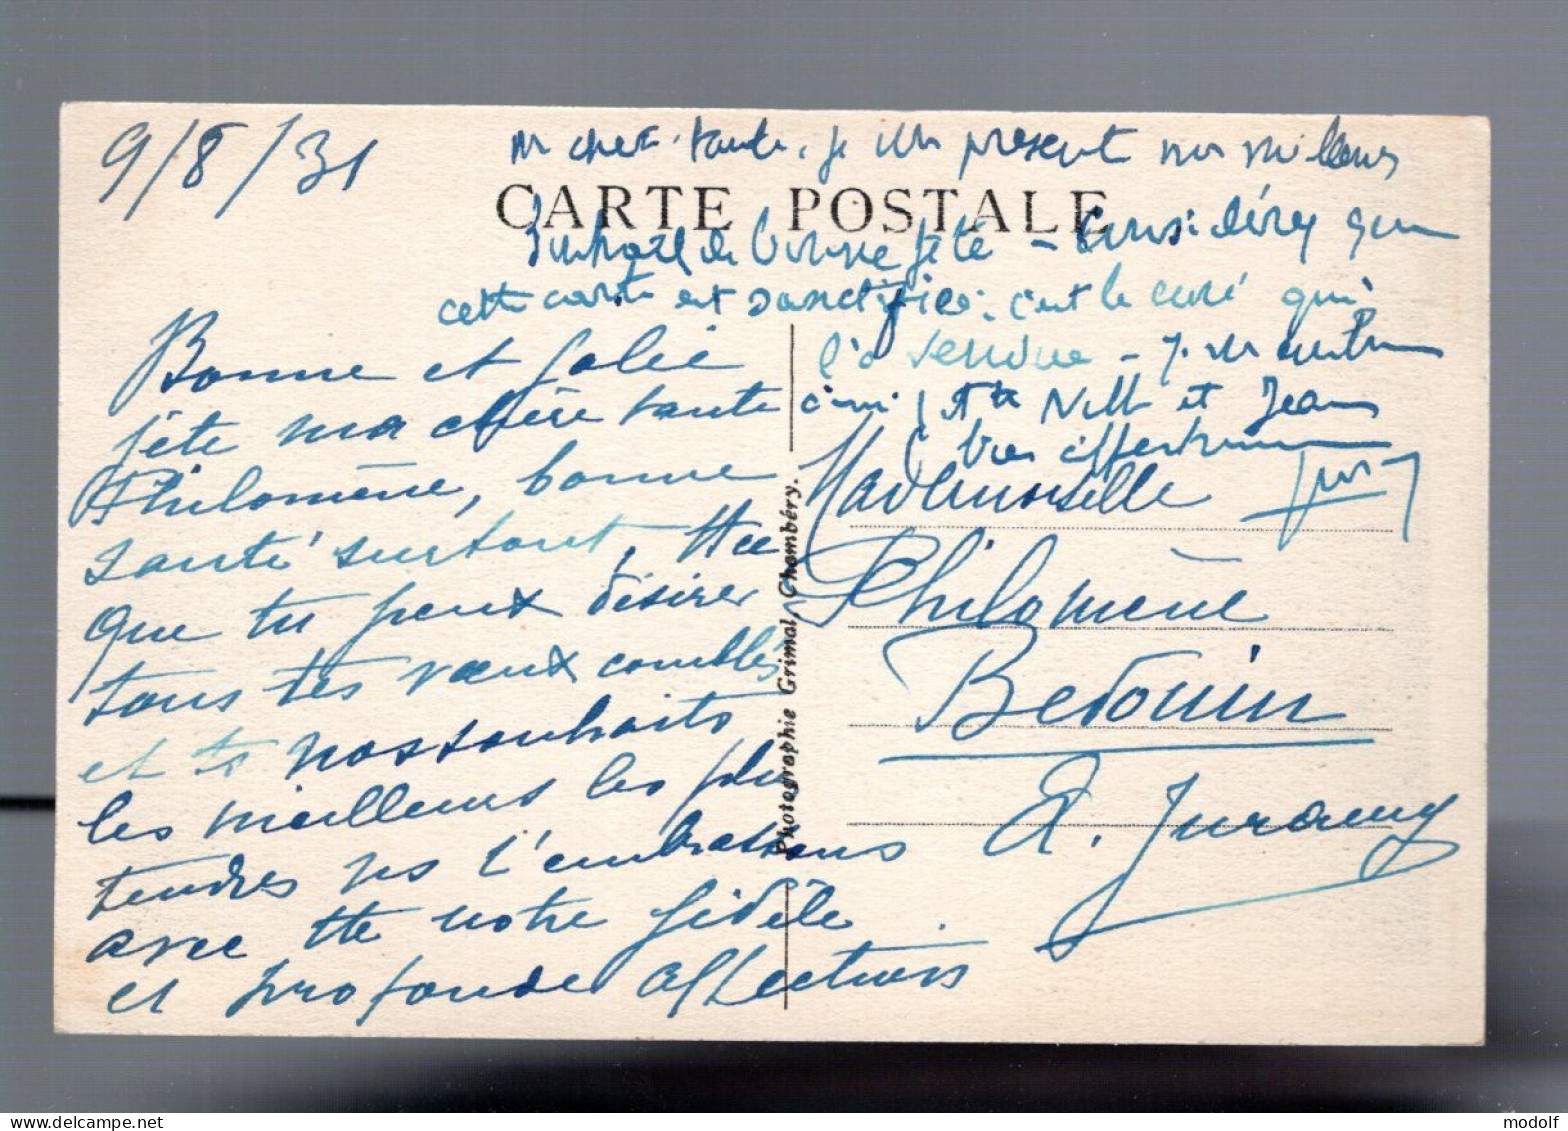 9/8/31
ma chère tante, je vs présent nos meilleurs
CARTE POSTALE
souhaits de bonne fête – Considérez que
cette carte est sanctifiée : c'est le curé qui
l'a
Bonne et jolie
fête ma chère tante
Philomène, bonne
santé surtout, tt ce
que tu peux désirer
tous tes vœux comblés
et nos souhaits
les meilleurs les plus
tendres ns t'embrassons
avec tte notre fidèle
et profonde affection
et Jean
très affectueusement
Mademoiselle
Philomène
Bedouin
A. Juramy
Photographie Grimal, Chambéry.
delcampe.net
modolf